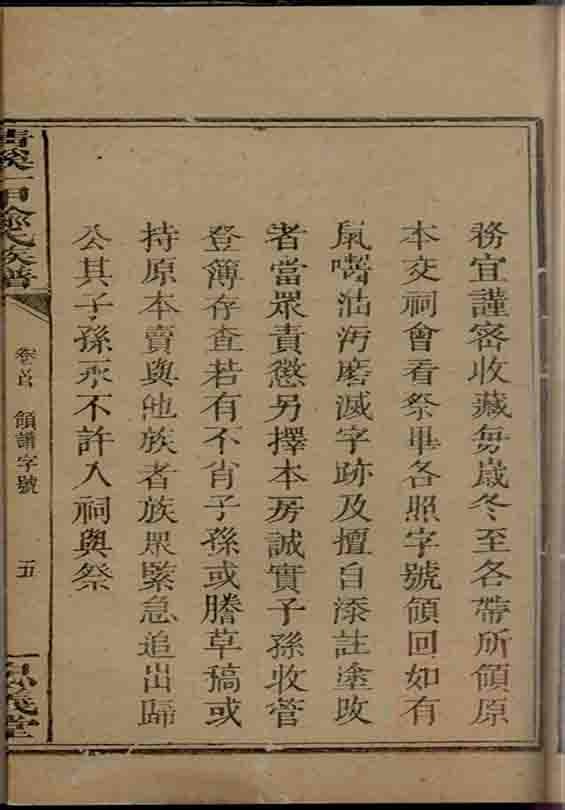 務宜謹密收藏每歲冬至各帶所領原
本交祠會看祭畢各照字號領回如有
鼠嚙油污磨滅字跡及擅自添註塗改
者當眾責懲另擇本房誠實子孫收管
登簿存查若有不肖子孫或謄草稿或
持原本賣與他族者族眾緊急追出歸
公其子孫永不許入祠與祭
青溪一甲俞氏族譜
卷首
領譜字號
五
義堂